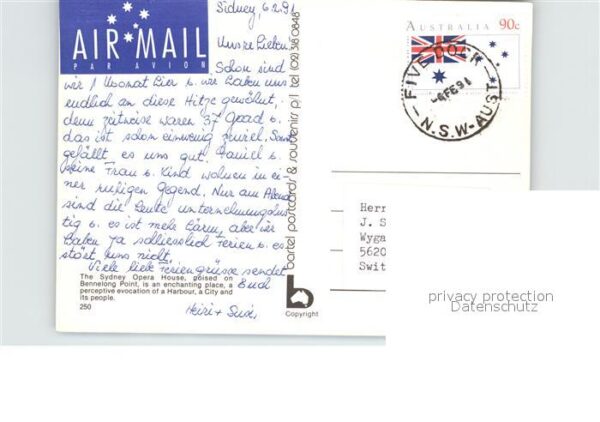 AIR MAIL
PAR AVION
Sidney, 6.2.91
Unsre Lieben
Schon sind
wir 1 Monat hier u. wir haben uns
endlich an diese Hitze gewöhnt,
denn zeitweise waren 37 Grad u.
das ist schon einwenig zuviel. Sonst
gefällt es uns gut. Daniel u.
seine Frau u. Kind wohnen in ei-
ner ruhigen Gegend. Nur am Abend
sind die Leute unternehmungslus-
tig u. es ist mehr Lärm, aber wir
haben ja schliesslich Ferien u. es
stört uns nicht.
Viele liebe Feriengrüsse sendet
Euch
Heiri + Susi,
The Sydney Opera House, poised on
Bennelong Point, is an enchanting place, a
perceptive evocation of a Harbour, a City and
its people.
250
bartel postcards & souvenirs p/l tel (02) 36 0848
Copyright
AUSTRALIA 90c
FIVE DOCK
-6FE91
N.S.W-AUST
Herr
J. S
Wyga
5620
Swit
privacy protection
Datenschutz